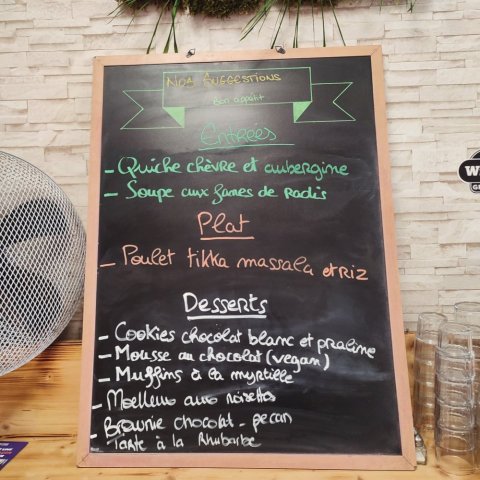 NOS SUGGESTIONS
Bon appétit
Entrées
- Quiche chèvre et aubergine
- Soupe aux fanes de Radis
Plat
- Poulet tikka massala et riz
Desserts
- Cookies chocolat blanc et praline
- Mousse au chocolat (vegan)
- Muffins à la myrtille
- Moelleux aux noisettes
- Brownie chocolat - pecan
Tarte à la Rhubarbe